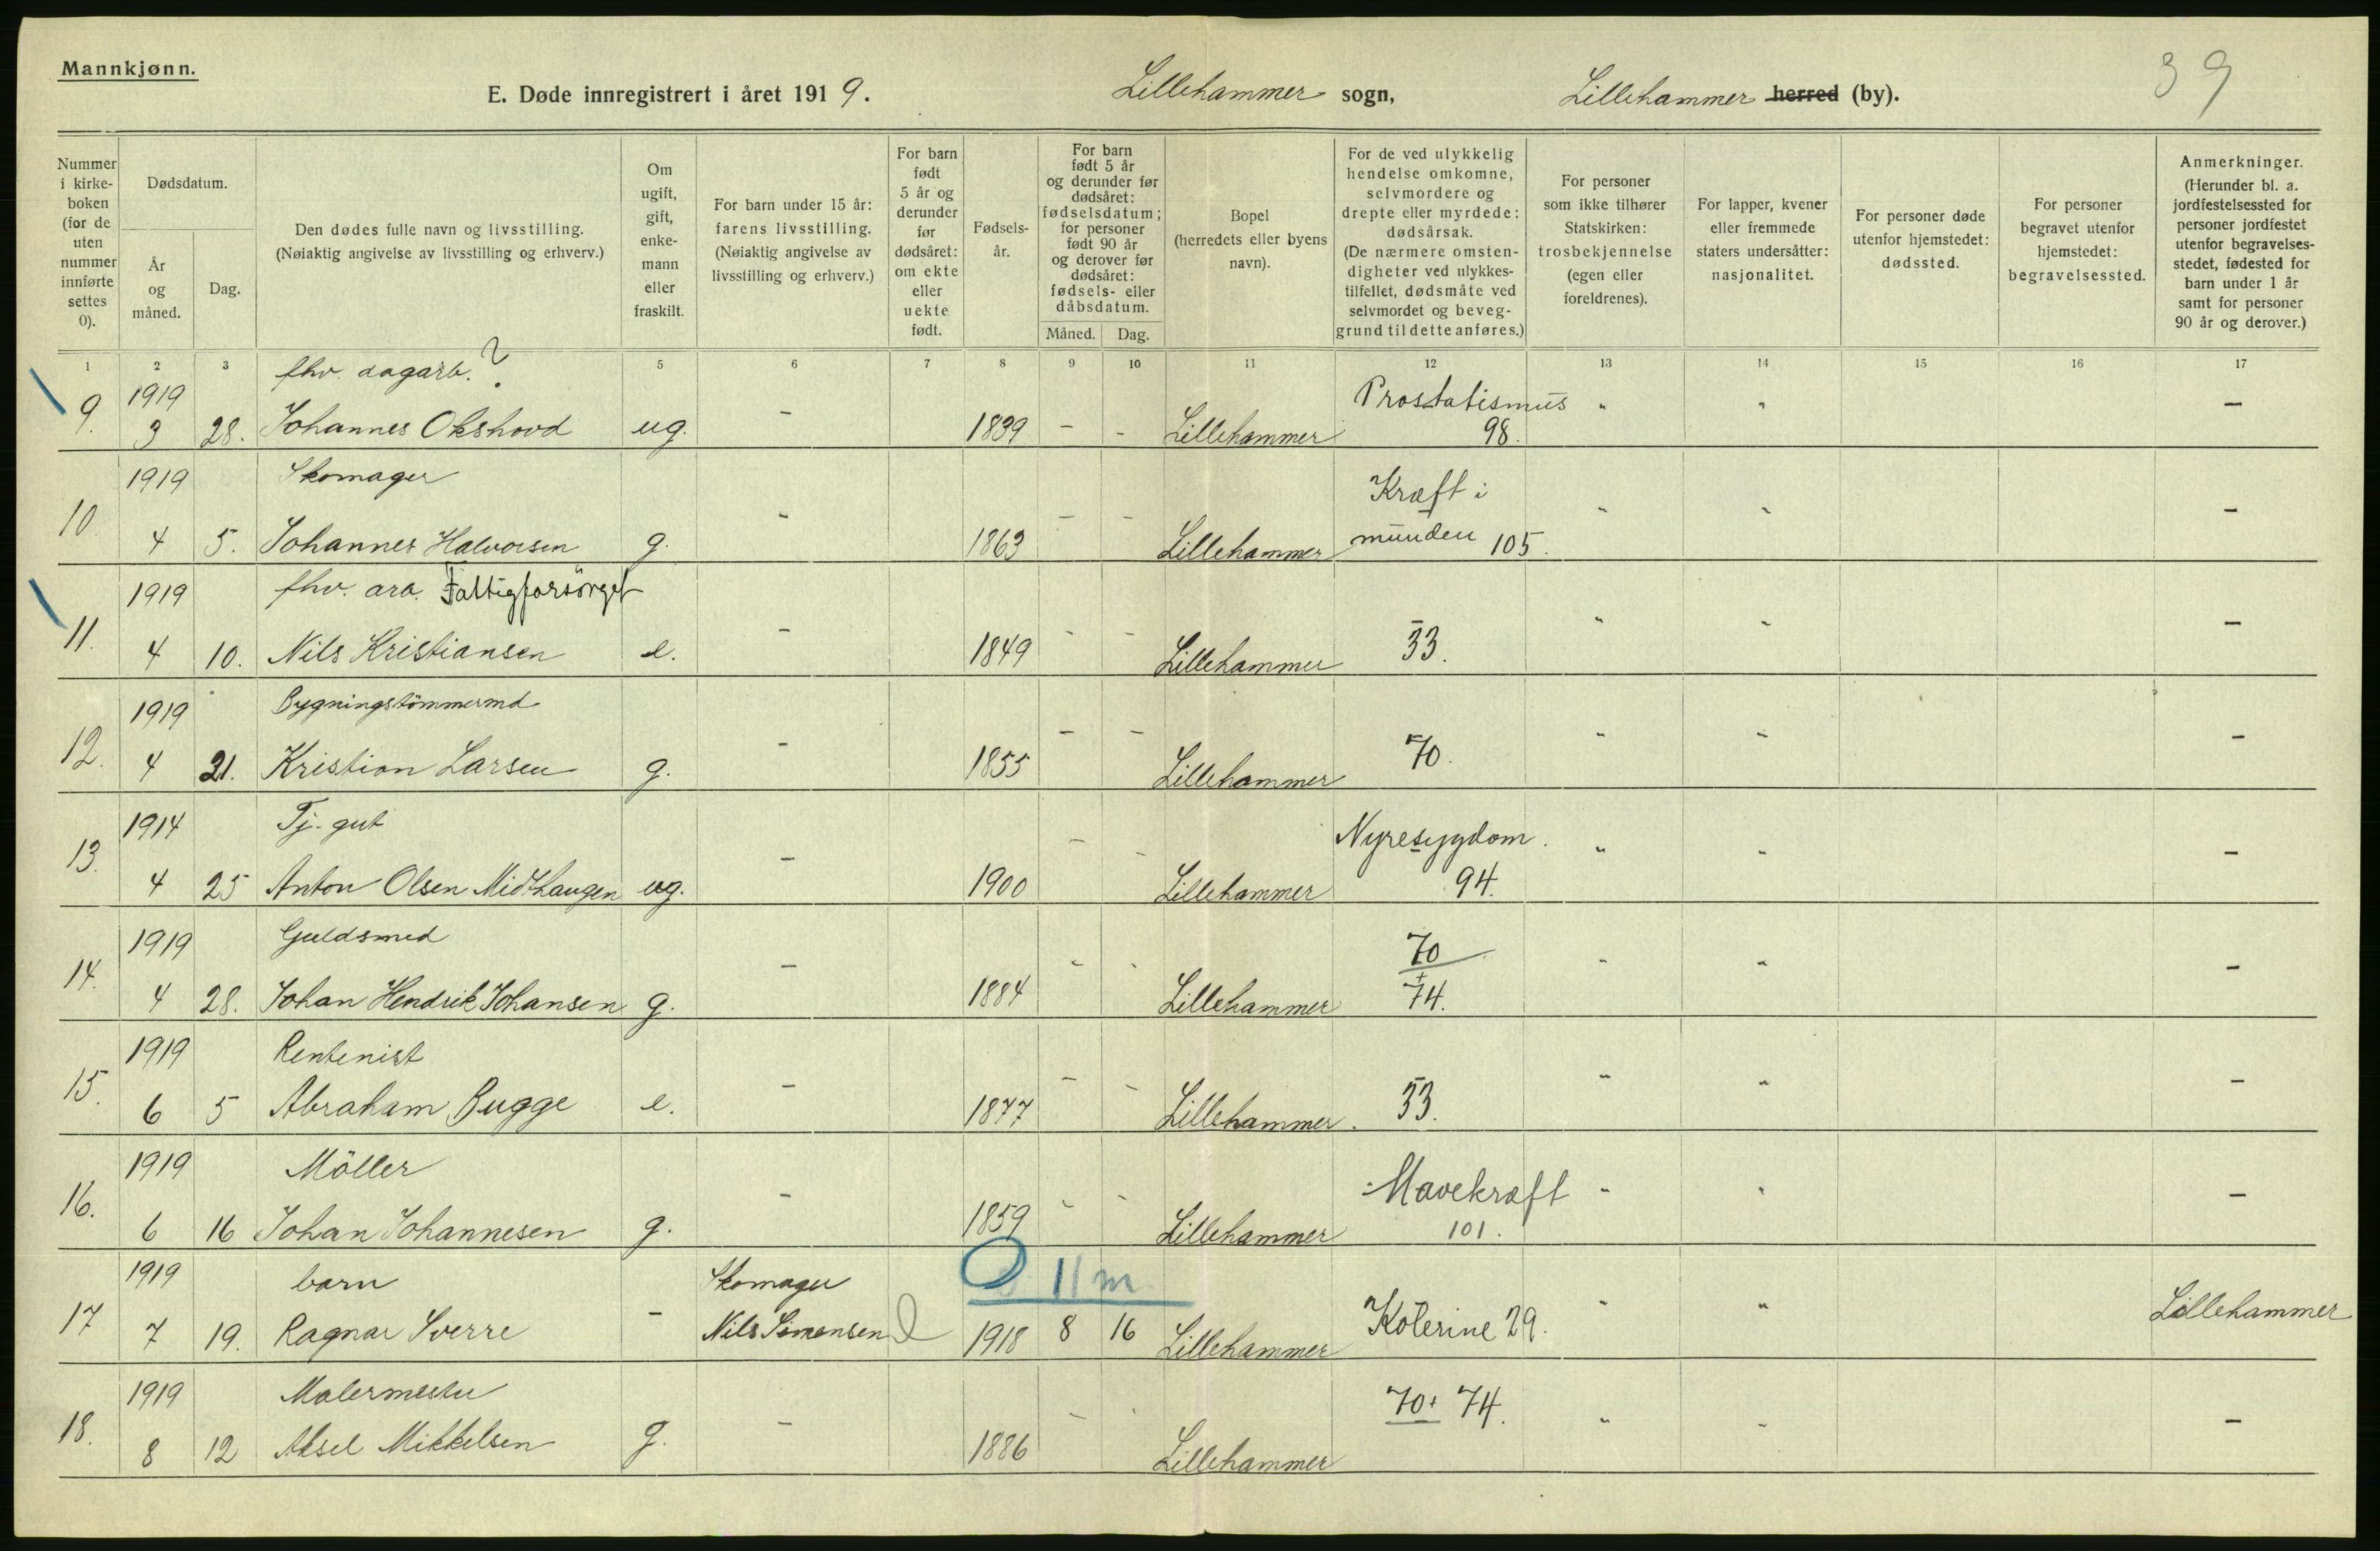 Mannkjønn.
E. Døde innregistrert i året 1919. Lillehammer sogn, Lillehammer herred (by).
39
Nummer i kirke-boken (for de uten nummer innførte settes 0).
Dødsdatum.
År og måned.
Dag.
Den dødes fulle navn og livsstilling. (Nøiaktig angivelse av livsstilling og erhverv.)
Om ugift, gift, enke-mann eller fraskilt.
For barn under 15 år: farens livsstilling. (Nøiaktig angivelse av livsstilling og erhverv.)
For barn født 5 år og derunder før dødsåret: om ekte eller uekte født.
Fødsels-år.
For barn født 5 år og derunder før dødsåret: fødselsdatum; for personer født 90 år og derover før dødsåret: fødsels- eller dåbsdatum.
Måned.
Dag.
Bopel (herredets eller byens navn).
For de ved ulykkelig hendelse omkomne, selvmordere og drepte eller myrdede: dødsårsak. (De nærmere omsten-digheter ved ulykkes-tilfellet, dødsmåte ved selvmordet og beveg-grund til dette anføres.)
For personer som ikke tilhører Statskirken: trosbekjennelse (egen eller foreldrenes).
For lapper, kvener eller fremmede staters undersåtter: nasjonalitet.
For personer døde utenfor hjemstedet: dødssted.
For personer begravet utenfor hjemstedet: begravelsessted.
Anmerkninger. (Herunder bl. a. jordfestelsessted for personer jordfestet utenfor begravelses-stedet, fødested for barn under 1 år samt for personer 90 år og derover.)
1 2 3 5 6 7 8 9 10 11 12 13 14 15 16 17
1919 fhv. dagarb. ? Prostatismus " "  –
9. 3 28. Johannes Okshovd ug. – 1839 – – Lillehammer 98.
1919 Skomager Kræft i
10 4 5. Johannes Halvorsen g. – 1863 – – Lillehammer munden 105. " " –
1919 fhv. arb. Fattigforsörget
11. 4 10. Nils Kristiansen e. – 1849 – – Lillehammer 33. " " –
1919 Bygningstömmermd
12. 4 21. Kristian Larsen g. – 1855 – – Lillehammer 70. " " –
1914 Tj. gut Nyresygdom.
13. 4 25 Anton Olsen Midthaugen ug. – 1900 – – Lillehammer 94. " " –
1919 Guldsmed 70
14. 4 28. Johan Hendrik Johansen g. – 1884 – – Lillehammer + 74. " " –
1919 Rentenist
15. 6 5 Abraham Bugge e. – 1877 – – Lillehammer. 33. " " –
1919 Möller Mavekræft
16. 6 16 Johan Johannesen g. – 1859 – – Lillehammer 101. " " –
1919 barn Skomager 0 11 m
17 7 19. Ragnar Sverre – Nils Simensen 1918 8 16 Lillehammer Kolerine 29. " " Lillehammer
1919 Malermester 70+ 74.
18. 8 12 Aksel Mikkelsen g. – 1886 – – Lillehammer " " –